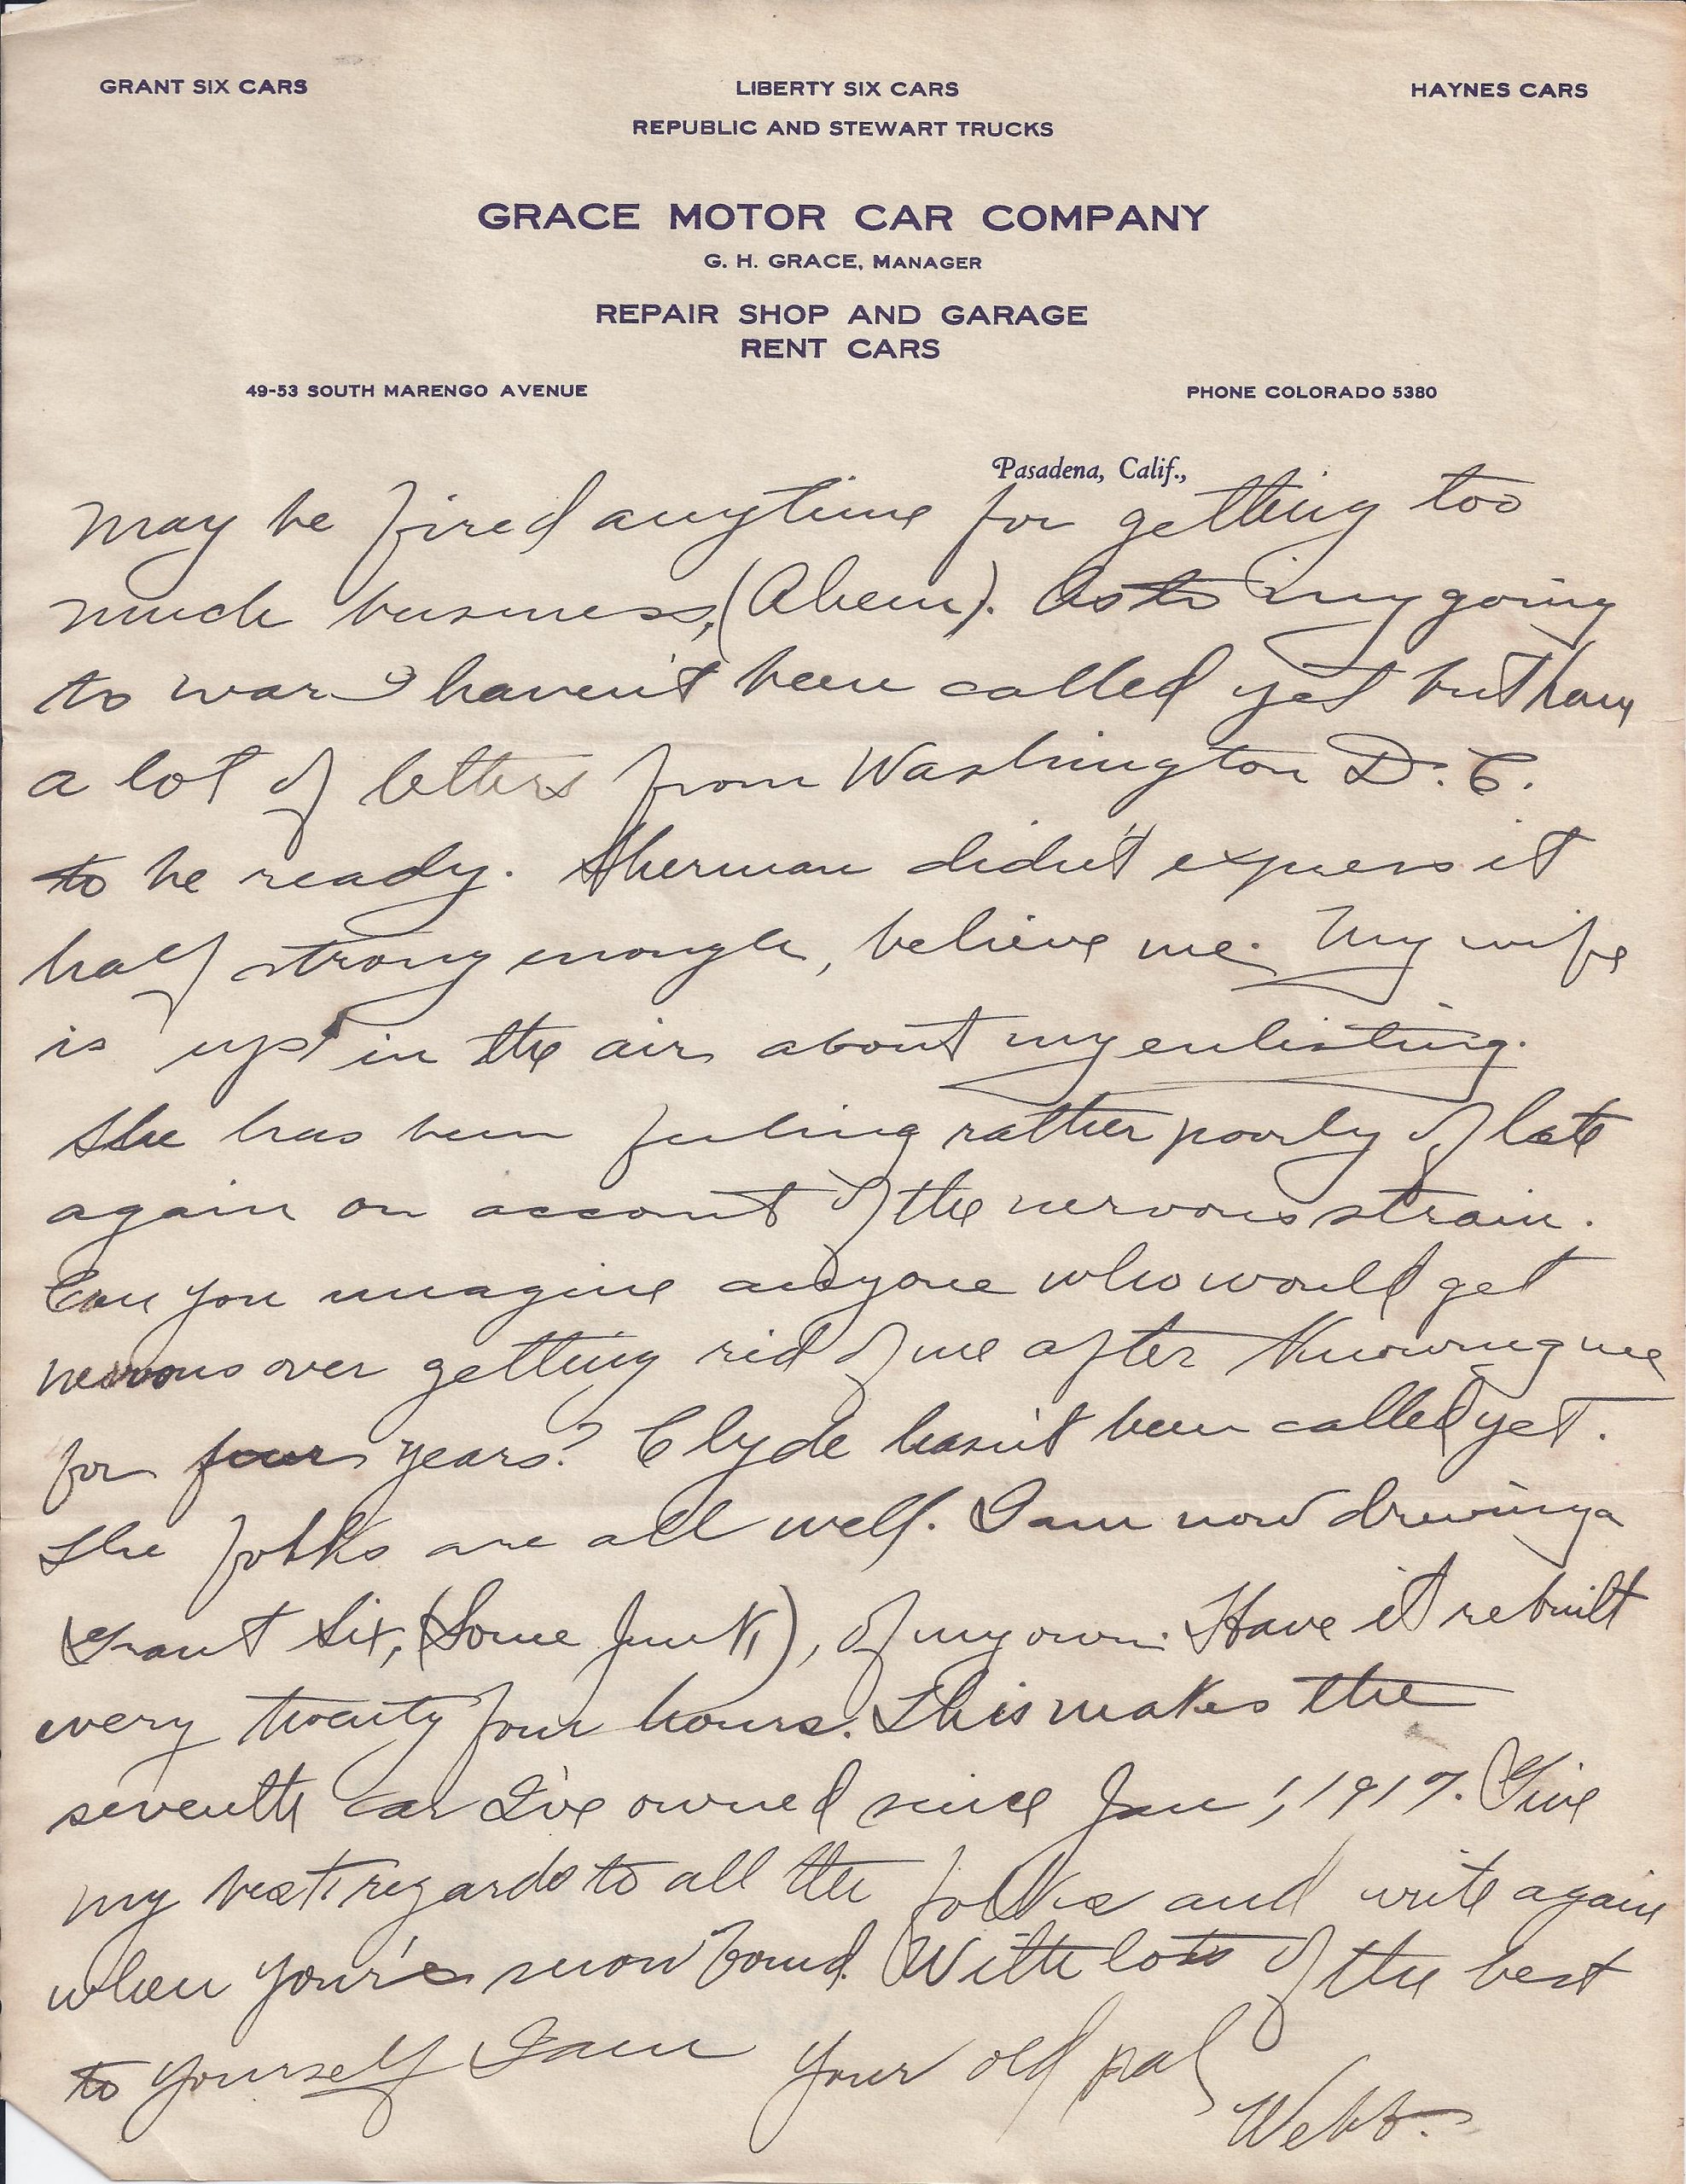 GRANT SIX CARS LIBERTY SIX CARS HAYNES CARS
REPUBLIC AND STEWART TRUCKS
GRACE MOTOR CAR COMPANY
G. H. GRACE, MANAGER
REPAIR SHOP AND GARAGE
RENT CARS
49-53 SOUTH MARENGO AVENUE PHONE COLORADO 5380
Pasadena, Calif.,
may be fired anytime for getting too
much business, (Ahem). As to my going
to war I haven't been called yet but have
a lot of letters from Washington D.C.
to be ready. Sherman didn't express it
half strong enough, believe me. My wife
is up in the air about my enlisting.
She has been feeling rather poorly of late
again on account of the nervous strain.
Can you imagine anyone who would get
nervous over getting rid of me after knowing me
for four years? Clyde hasn't been called yet.
The folks are all well. I am now driving a
Grant Six, (Some Junk), of my own. Have it rebuilt
every twenty four hours. This makes the
seventh car I've owned since Jan 1, 1917. Give
my best regards to all the folks and write again
when your'e snow bound. With lots of the best
to yourself I am your old pal
Webb.